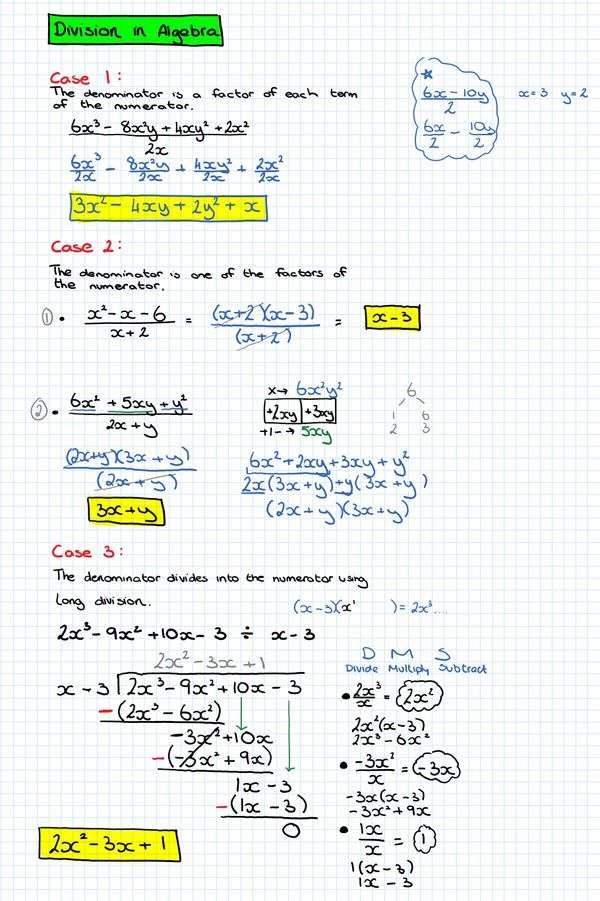 Division in Algebra
Case 1:
The denominator is a factor of each term
of the numerator.
6x³ - 8x²y + 4xy² + 2x²
2x
6x³/2x - 8x²y/2x + 4xy²/2x + 2x²/2x
3x² - 4xy + 2y² + x
6x - 10y
2
6x/2 - 10y/2
x=3 y=2
Case 2:
The denominator is one of the factors of
the numerator.
① • x² - x - 6 / x + 2 = (x+2)(x-3) / (x+2) = x - 3
② • 6x² + 5xy + y²
2x + y
(2x+y)(3x+y)
(2x+y)
3x + y
x→ 6x²y²
+2xy +3xy
+/- → 5xy
6
1 6
2 3
6x² + 2xy + 3xy + y²
2x(3x+y) + y(3x+y)
(2x+y)(3x+y)
Case 3:
The denominator divides into the numerator using
long division.
(x-3)(x¹ ) = 2x³....
2x³ - 9x² + 10x - 3 ÷ x - 3
2x² - 3x + 1
x - 3 2x³ - 9x² + 10x - 3
-(2x³ - 6x²)
-3x² + 10x
-(-3x² + 9x)
1x - 3
-(1x - 3)
0
2x² - 3x + 1
D M S
Divide Multiply Subtract
• 2x³/x = 2x²
2x²(x-3)
2x³ - 6x²
• -3x²/x = -3x
-3x(x-3)
-3x² + 9x
• 1x/x = 1
1(x-3)
1x - 3